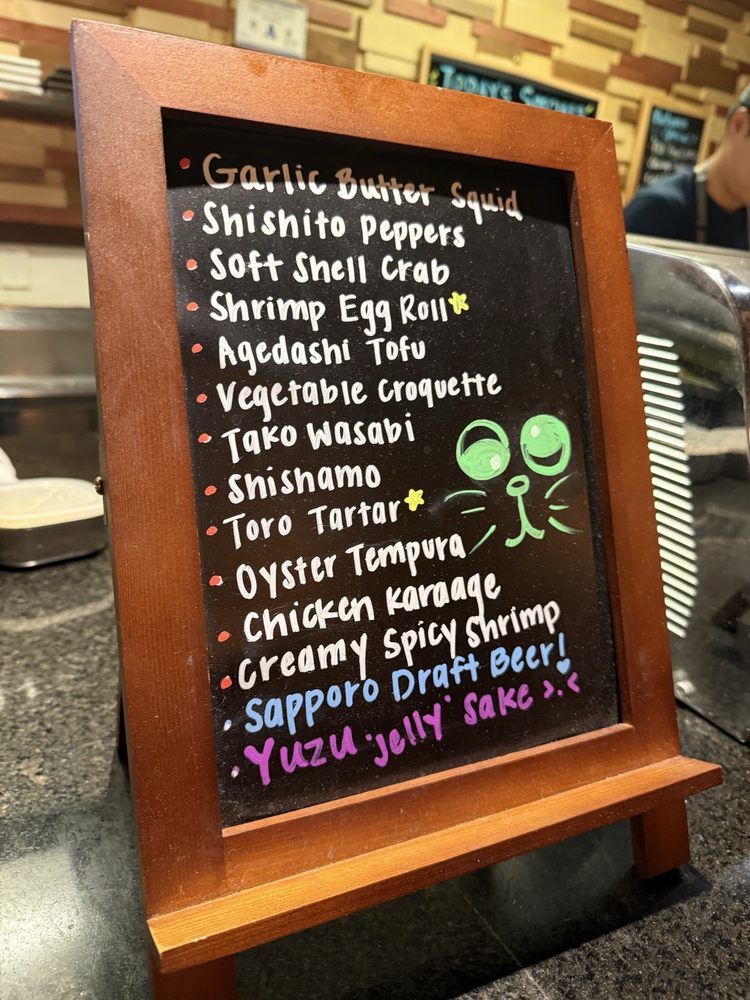 TODAY'S
Garlic Butter Squid
Shishito Peppers
Soft Shell Crab
Shrimp Egg Roll
Agedashi Tofu
Vegetable Croquette
Tako Wasabi
Shishamo
Toro Tartar
Oyster Tempura
Chicken Karaage
Creamy Spicy Shrimp
Sapporo Draft Beer!
Yuzu "jelly" sake >.<